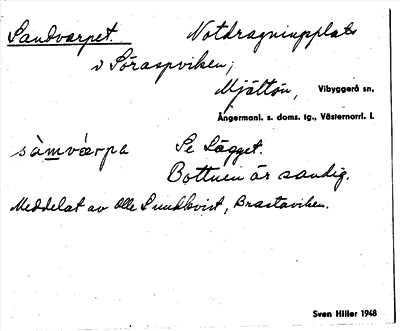 Sandvarpet. Notdragningplats
v Söraspviken;
Mjältön, Vibyggerå sn,
Ångermanl. s. doms. tg., Västernorrl. l.
sàmvárpa Se Lägget.
Bottnen är sandig.
Meddelat av Olle Sundkvist, Brastaviken.
Sven Hiller 1948